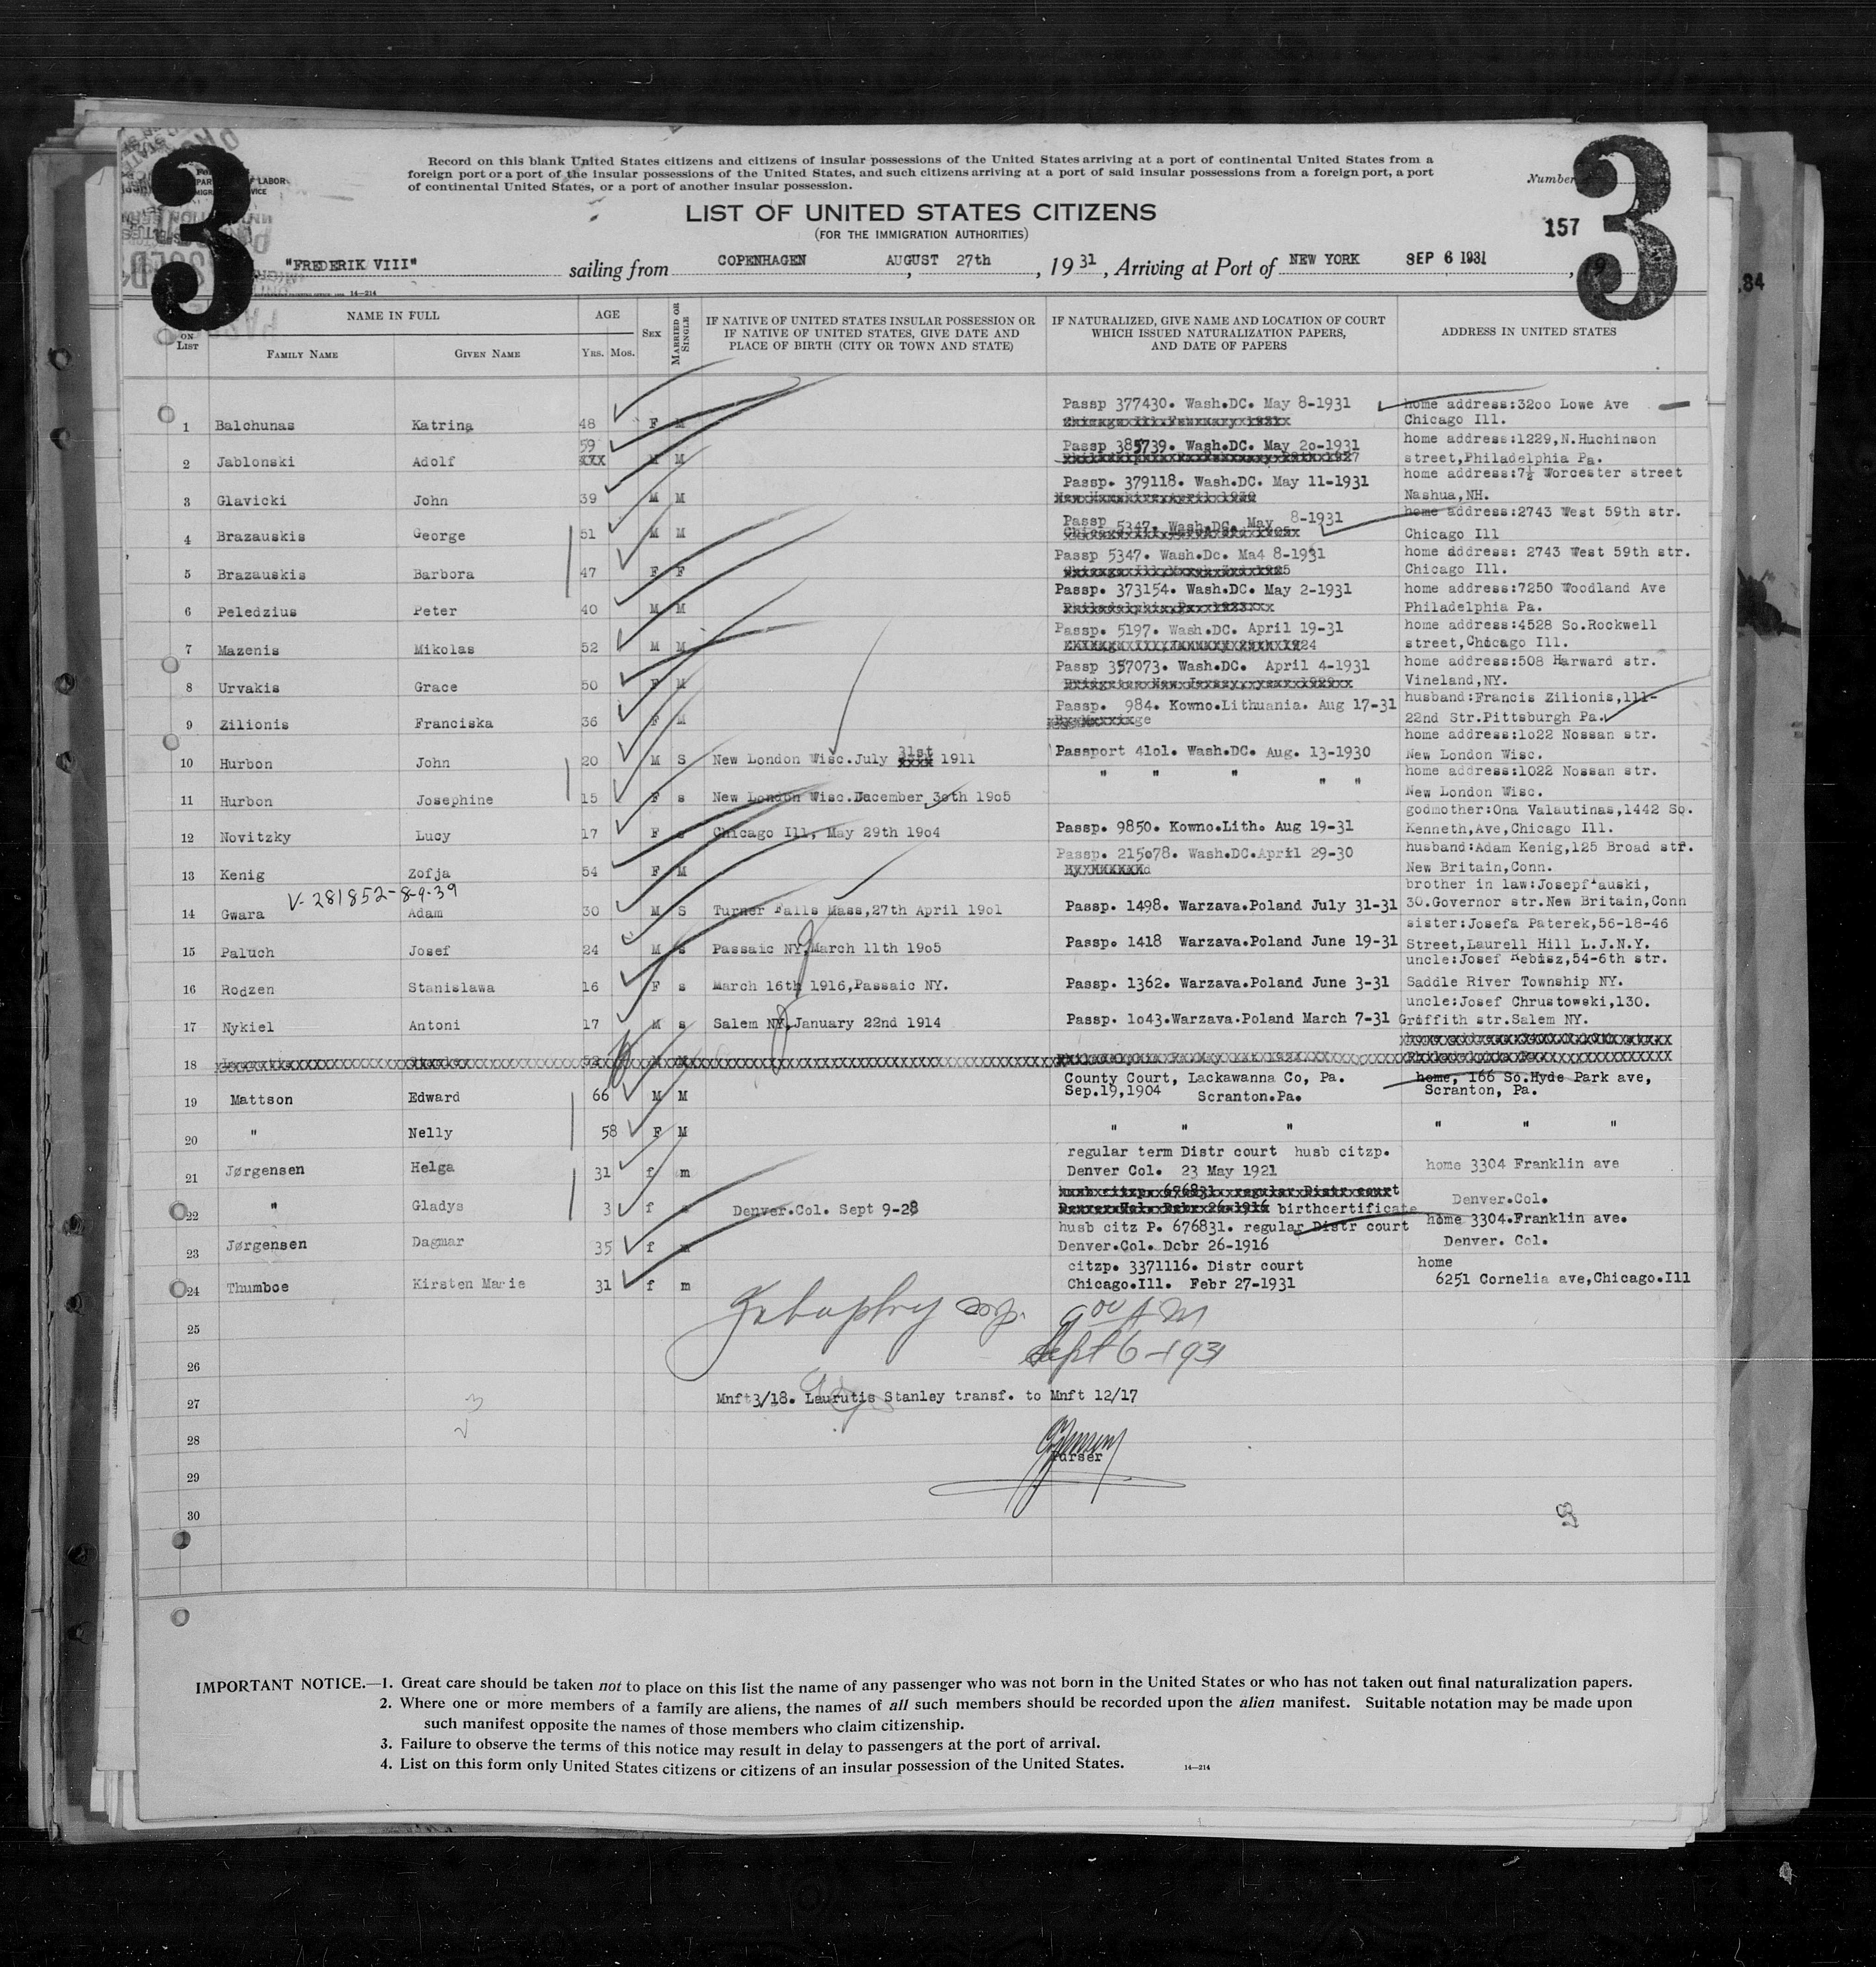 3
3
Record on this blank United States citizens and citizens of insular possessions of the United States arriving at a port of continental United States from a
foreign port or a port of the insular possessions of the United States, and such citizens arriving at a port of said insular possessions from a foreign port, a port
of continental United States, or a port of another insular possession.
Number
LIST OF UNITED STATES CITIZENS
(FOR THE IMMIGRATION AUTHORITIES)
157
"FREDERIK VIII" sailing from COPENHAGEN AUGUST 27th, 1931, Arriving at Port of NEW YORK SEP 6 1931, 19
14—214
84
ON LIST
NAME IN FULL
FAMILY NAME
GIVEN NAME
AGE
YRS. MOS.
SEX
MARRIED OR SINGLE
IF NATIVE OF UNITED STATES INSULAR POSSESSION OR
IF NATIVE OF UNITED STATES, GIVE DATE AND
PLACE OF BIRTH (CITY OR TOWN AND STATE)
IF NATURALIZED, GIVE NAME AND LOCATION OF COURT
WHICH ISSUED NATURALIZATION PAPERS,
AND DATE OF PAPERS
ADDRESS IN UNITED STATES
1 Balchunas Katrina 48 F M Passp 377430. Wash.DC. May 8-1931 home address:32oo Lowe Ave
Chicago Ill.
2 Jablonski Adolf 59 M M Passp 385739. Wash.DC. May 2o-1931 home address:1229,N.Huchinson
street,Philadelphia Pa.
3 Glavicki John 39 M M Passp. 379118. Wash.DC. May 11-1931 home address:7½ Worcester street
Nashua,NH.
4 Brazauskis George 51 M M Passp 5347. Wash.DC. May 8-1931 home address:2743 West 59th str.
Chicago Ill
5 Brazauskis Barbora 47 F F Passp 5347. Wash.Dc. Ma4 8-1931 home address: 2743 West 59th str.
Chicago Ill.
6 Peledzius Peter 40 M M Passp. 373154. Wash.DC. May 2-1931 home address:7250 Woodland Ave
Philadelphia Pa.
7 Mazenis Mikolas 52 M M Passp. 5197. Wash.DC. April 19-31 home address:4528 So.Rockwell
street,Chicago Ill.
8 Urvakis Grace 50 F M Passp 357073. Wash.DC. April 4-1931 home address:508 Harward str.
Vineland,NY.
9 Zilionis Franciska 36 F M Passp. 984. Kowno.Lithuania. Aug 17-31 husband:Francis Zilionis,111-
22nd Str.Pittsburgh Pa.
10 Hurbon John 20 M S New London Wisc.July 31st 1911 Passport 41o1. Wash.DC. Aug. 13-1930 home address:1o22 Nossan str.
New London Wisc.
11 Hurbon Josephine 15 F s New London Wisc.December 3oth 19o5 " " " " " home address:1022 Nossan str.
New London Wisc.
12 Novitzky Lucy 17 F s Chicago Ill, May 29th 19o4 Passp. 9850. Kowno.Lith. Aug 19-31 godmother:Ona Valautinas,1442 So.
Kenneth,Ave,Chicago Ill.
13 Kenig Zofja 54 F M Passp. 215o78. Wash.DC.April 29-30 husband:Adam Kenig,125 Broad str.
New Britain,Conn.
V-281852-8-9-39
14 Gwara Adam 30 M S Turner Falls Mass,27th April 19o1 Passp. 1498. Warzava.Poland July 31-31 brother in law:Josepf auski,
30.Governor str.New Britain,Conn
15 Paluch Josef 24 M s Passaic NY,March 11th 19o5 Passp. 1418 Warzava.Poland June 19-31 sister:Josefa Paterek,56-18-46
Street,Laurell Hill L.J.N.Y.
16 Rodzen Stanislawa 16 F s March 16th 1916,Passaic NY. Passp. 1362. Warzava.Poland June 3-31 uncle:Josef Rebisz,54-6th str.
Saddle River Township NY.
17 Nykiel Antoni 17 M s Salem NY,January 22nd 1914 Passp. 1o43.Warzava.Poland March 7-31 uncle:Josef Chrustowski,130.
Griffith str.Salem NY.
18 52 M M
19 Mattson Edward 66 M M County Court, Lackawanna Co, Pa. home, 166 So.Hyde Park ave,
Sep.19,1904 Scranton.Pa. Scranton, Pa.
20 " Nelly 58 F M " " " " " "
21 Jørgensen Helga 31 f m regular term Distr court husb citzp.
Denver Col. 23 May 1921 home 3304 Franklin ave
Denver.Col.
22 " Gladys 3 f s Denver.Col. Sept 9-28 birthcertificate
23 Jørgensen Dagmar 35 f m husb citz P. 676831. regular Distr court home 3304.Franklin ave.
Denver.Col. Dcbr 26-1916 Denver. Col.
24 Thumboe Kirsten Marie 31 f m citzp. 3371116. Distr court home
Chicago.Ill. Febr 27-1931 6251 Cornelia ave,Chicago.Ill
25
9 00 A M
26
Sept 6-1931
27 Mnft3/18. Laurutis Stanley transf. to Mnft 12/17
28
Purser
29
30
IMPORTANT NOTICE.—1. Great care should be taken not to place on this list the name of any passenger who was not born in the United States or who has not taken out final naturalization papers.
2. Where one or more members of a family are aliens, the names of all such members should be recorded upon the alien manifest. Suitable notation may be made upon
such manifest opposite the names of those members who claim citizenship.
3. Failure to observe the terms of this notice may result in delay to passengers at the port of arrival.
4. List on this form only United States citizens or citizens of an insular possession of the United States. 14—214